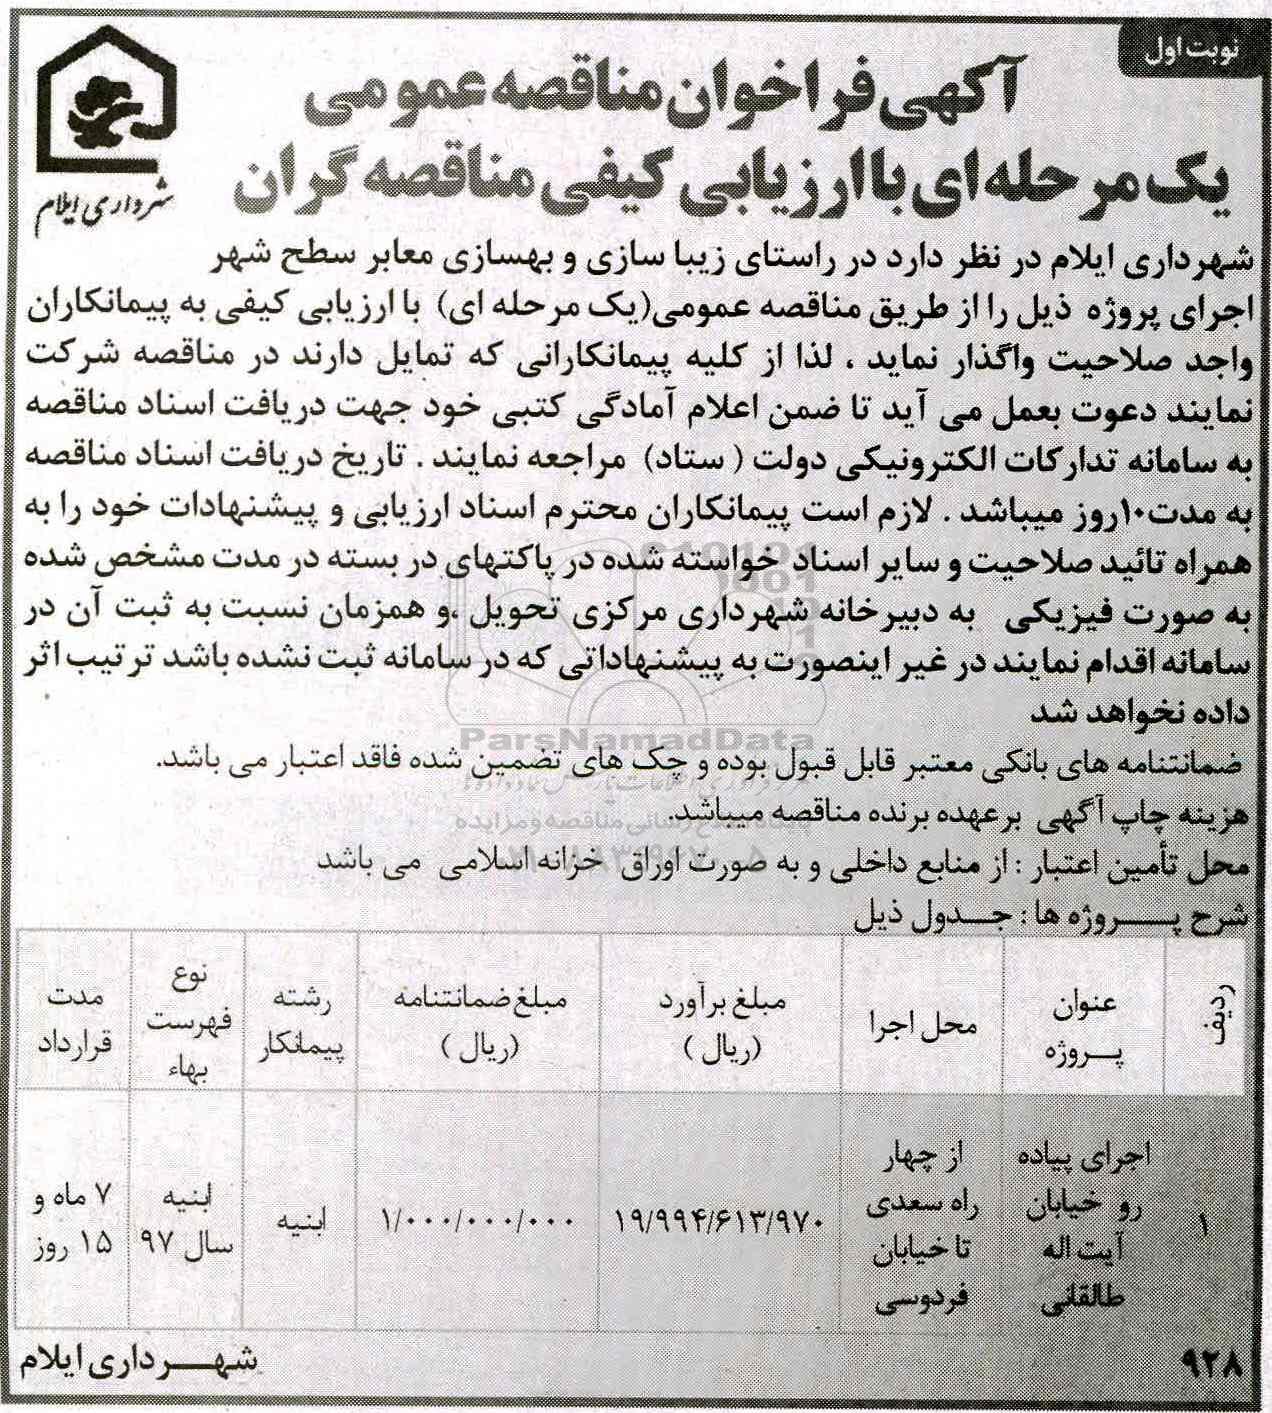 نوبت اول
آگهی فراخوان مناقصه عمومی
یک مرحله ای با ارزیابی کیفی مناقصه گران
شهرداری ایلام
شهرداری ایلام در نظر دارد در راستای زیبا سازی و بهسازی معابر سطح شهر
اجرای پروژه ذیل را از طریق مناقصه عمومی(یک مرحله ای) با ارزیابی کیفی به پیمانکاران
واجد صلاحیت واگذار نماید ، لذا از کلیه پیمانکارانی که تمایل دارند در مناقصه شرکت
نمایند دعوت بعمل می آید تا ضمن اعلام آمادگی کتبی خود جهت دریافت اسناد مناقصه
به سامانه تدارکات الکترونیکی دولت ( ستاد) مراجعه نمایند . تاریخ دریافت اسناد مناقصه
به مدت۱۰روز میباشد . لازم است پیمانکاران محترم اسناد ارزیابی و پیشنهادات خود را به
همراه تائید صلاحیت و سایر اسناد خواسته شده در پاکتهای در بسته در مدت مشخص شده
به صورت فیزیکی به دبیرخانه شهرداری مرکزی تحویل ،و همزمان نسبت به ثبت آن در
سامانه اقدام نمایند در غیر اینصورت به پیشنهاداتی که در سامانه ثبت نشده باشد ترتیب اثر
داده نخواهد شد
ParsNamadData
ضمانتنامه های بانکی معتبر قابل قبول بوده و چک های تضمین شده فاقد اعتبار می باشد.
هزینه چاپ آگهی برعهده برنده مناقصه میباشد.
محل تأمین اعتبار : از منابع داخلی و به صورت اوراق خزانه اسلامی می باشد
شرح پـــروژه ها : جـدول ذیل
ردیف
عنوان
پـروژه
محل اجرا
مبلغ برآورد
(ریال )
مبلغ ضمانتنامه
(ریال )
رشته
پیمانکار
نوع
فهرست
بهاء
مدت
قرارداد
۱
اجرای پیاده
رو خیابان
آیت اله
طالقانی
از چهار
راه سعدی
تا خیابان
فردوسی
۱۹/۹۹۴/۶۱۳/۹۷۰
۱/۰۰۰/۰۰۰/۰۰۰
ابنیه
ابنیه
سال ۹۷
۷ ماه و
۱۵ روز
۹۲۸
شهـــرداری ایلام